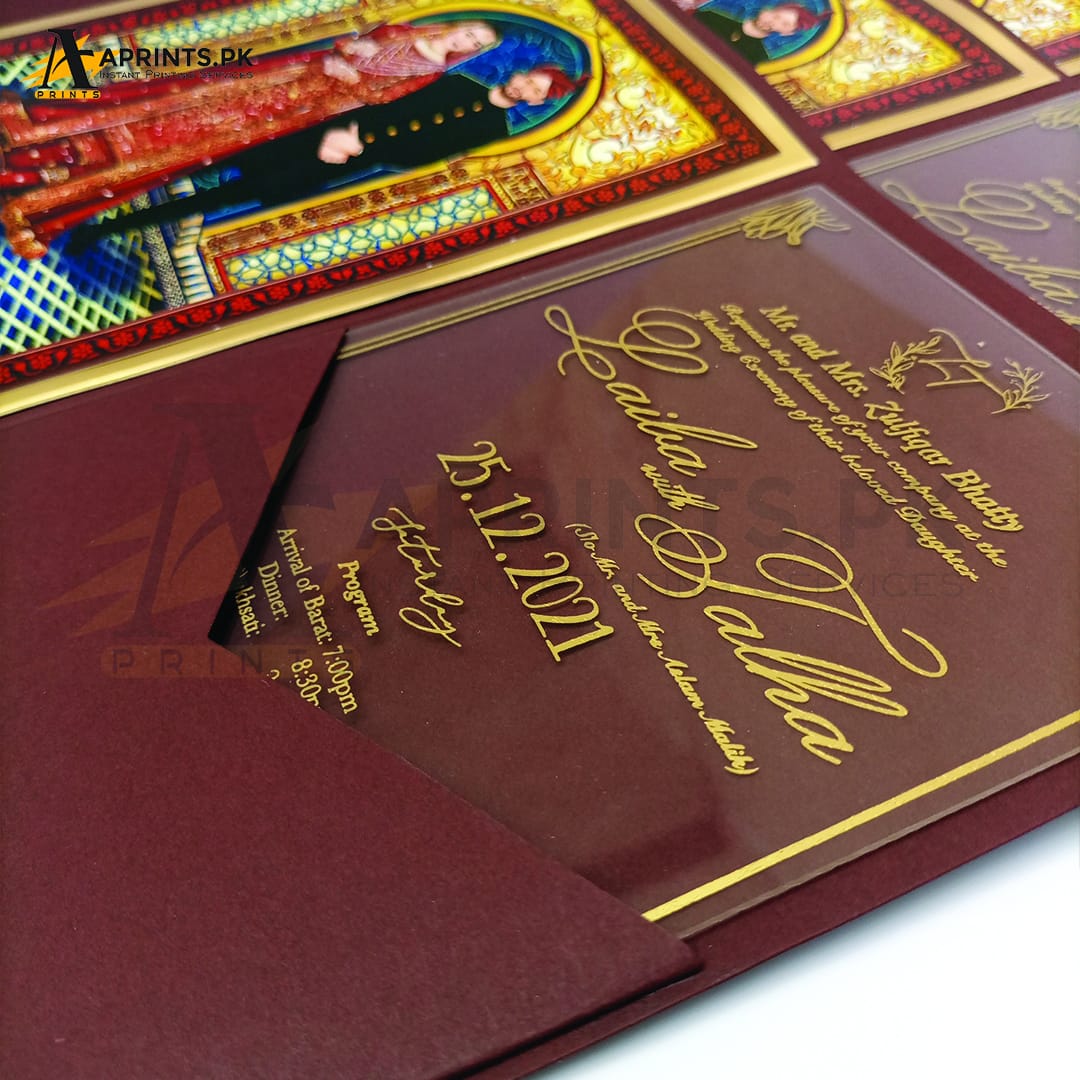 A
APRINTS.PK
INSTANT PRINTING SERVICES
PRINTS
LT
Mr. and Mrs. Zulfiqar Bhatty
Requests the pleasure of your company at the
Wedding Ceremony of their beloved Daughter
Laiba
with
Talha
(S/o Mr. and Mrs Aslam Malik)
25.12.2021
Saturday
Program
Arrival of Barat: 7:00pm
Dinner: 8:30p
khsati:
Laiba
APRINTS.PK
INSTANT PRINTING SERVICES
PRINTS